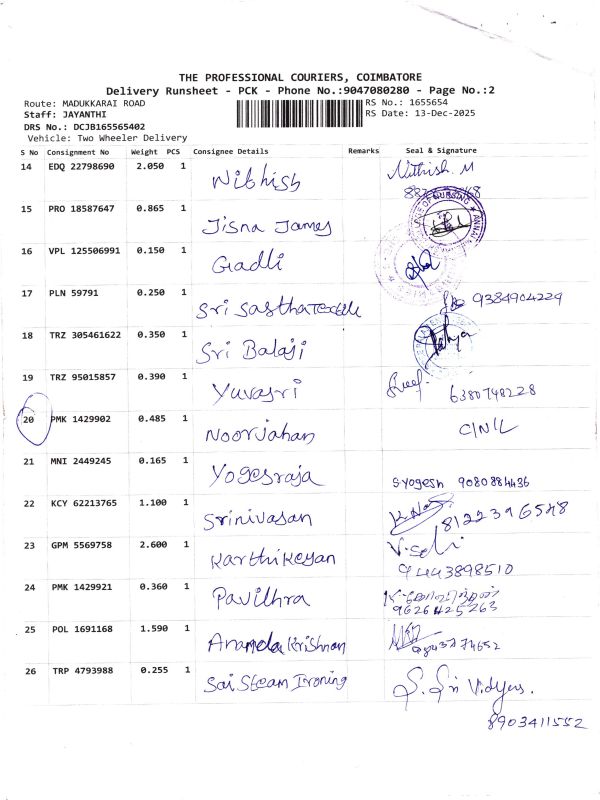 THE PROFESSIONAL COURIERS, COIMBATORE
Delivery Runsheet - PCK - Phone No.:9047080280 - Page No.:2
Route: MADUKKARAI ROAD
RS No.: 1655654
Staff: JAYANTHI
RS Date: 13-Dec-2025
DRS No.: DCJB165565402
Vehicle: Two Wheeler Delivery
S No Consignment No Weight PCS Consignee Details Remarks Seal & Signature
14 EDQ 22798690 2.050 1 Nithish Nithish M
15 PRO 18587647 0.865 1 Jisna James
16 VPL 125506991 0.150 1 Gadli
17 PLN 59791 0.250 1 Sri Sastha Textile 9384904229
18 TRZ 305461622 0.350 1 Sri Balaji
19 TRZ 95015857 0.390 1 Yuvasri
6380748228
20 PMK 1429902 0.485 1 Noorjahan C/N/L
21 MNI 2449245 0.165 1 Yogesraja
Syogesh 9080884436
22 KCY 62213765 1.100 1 Srinivasan
8122396548
23 GPM 5569758 2.600 1 Karthikeyan V. Selvi
9443898510
24 PMK 1429921 0.360 1 Pavithra
9626425263
25 POL 1691168 1.590 1 Ananda Krishnan
9843774652
26 TRP 4793988 0.255 1 Sai Steam Ironing S. Sri Vidya.
8903411552